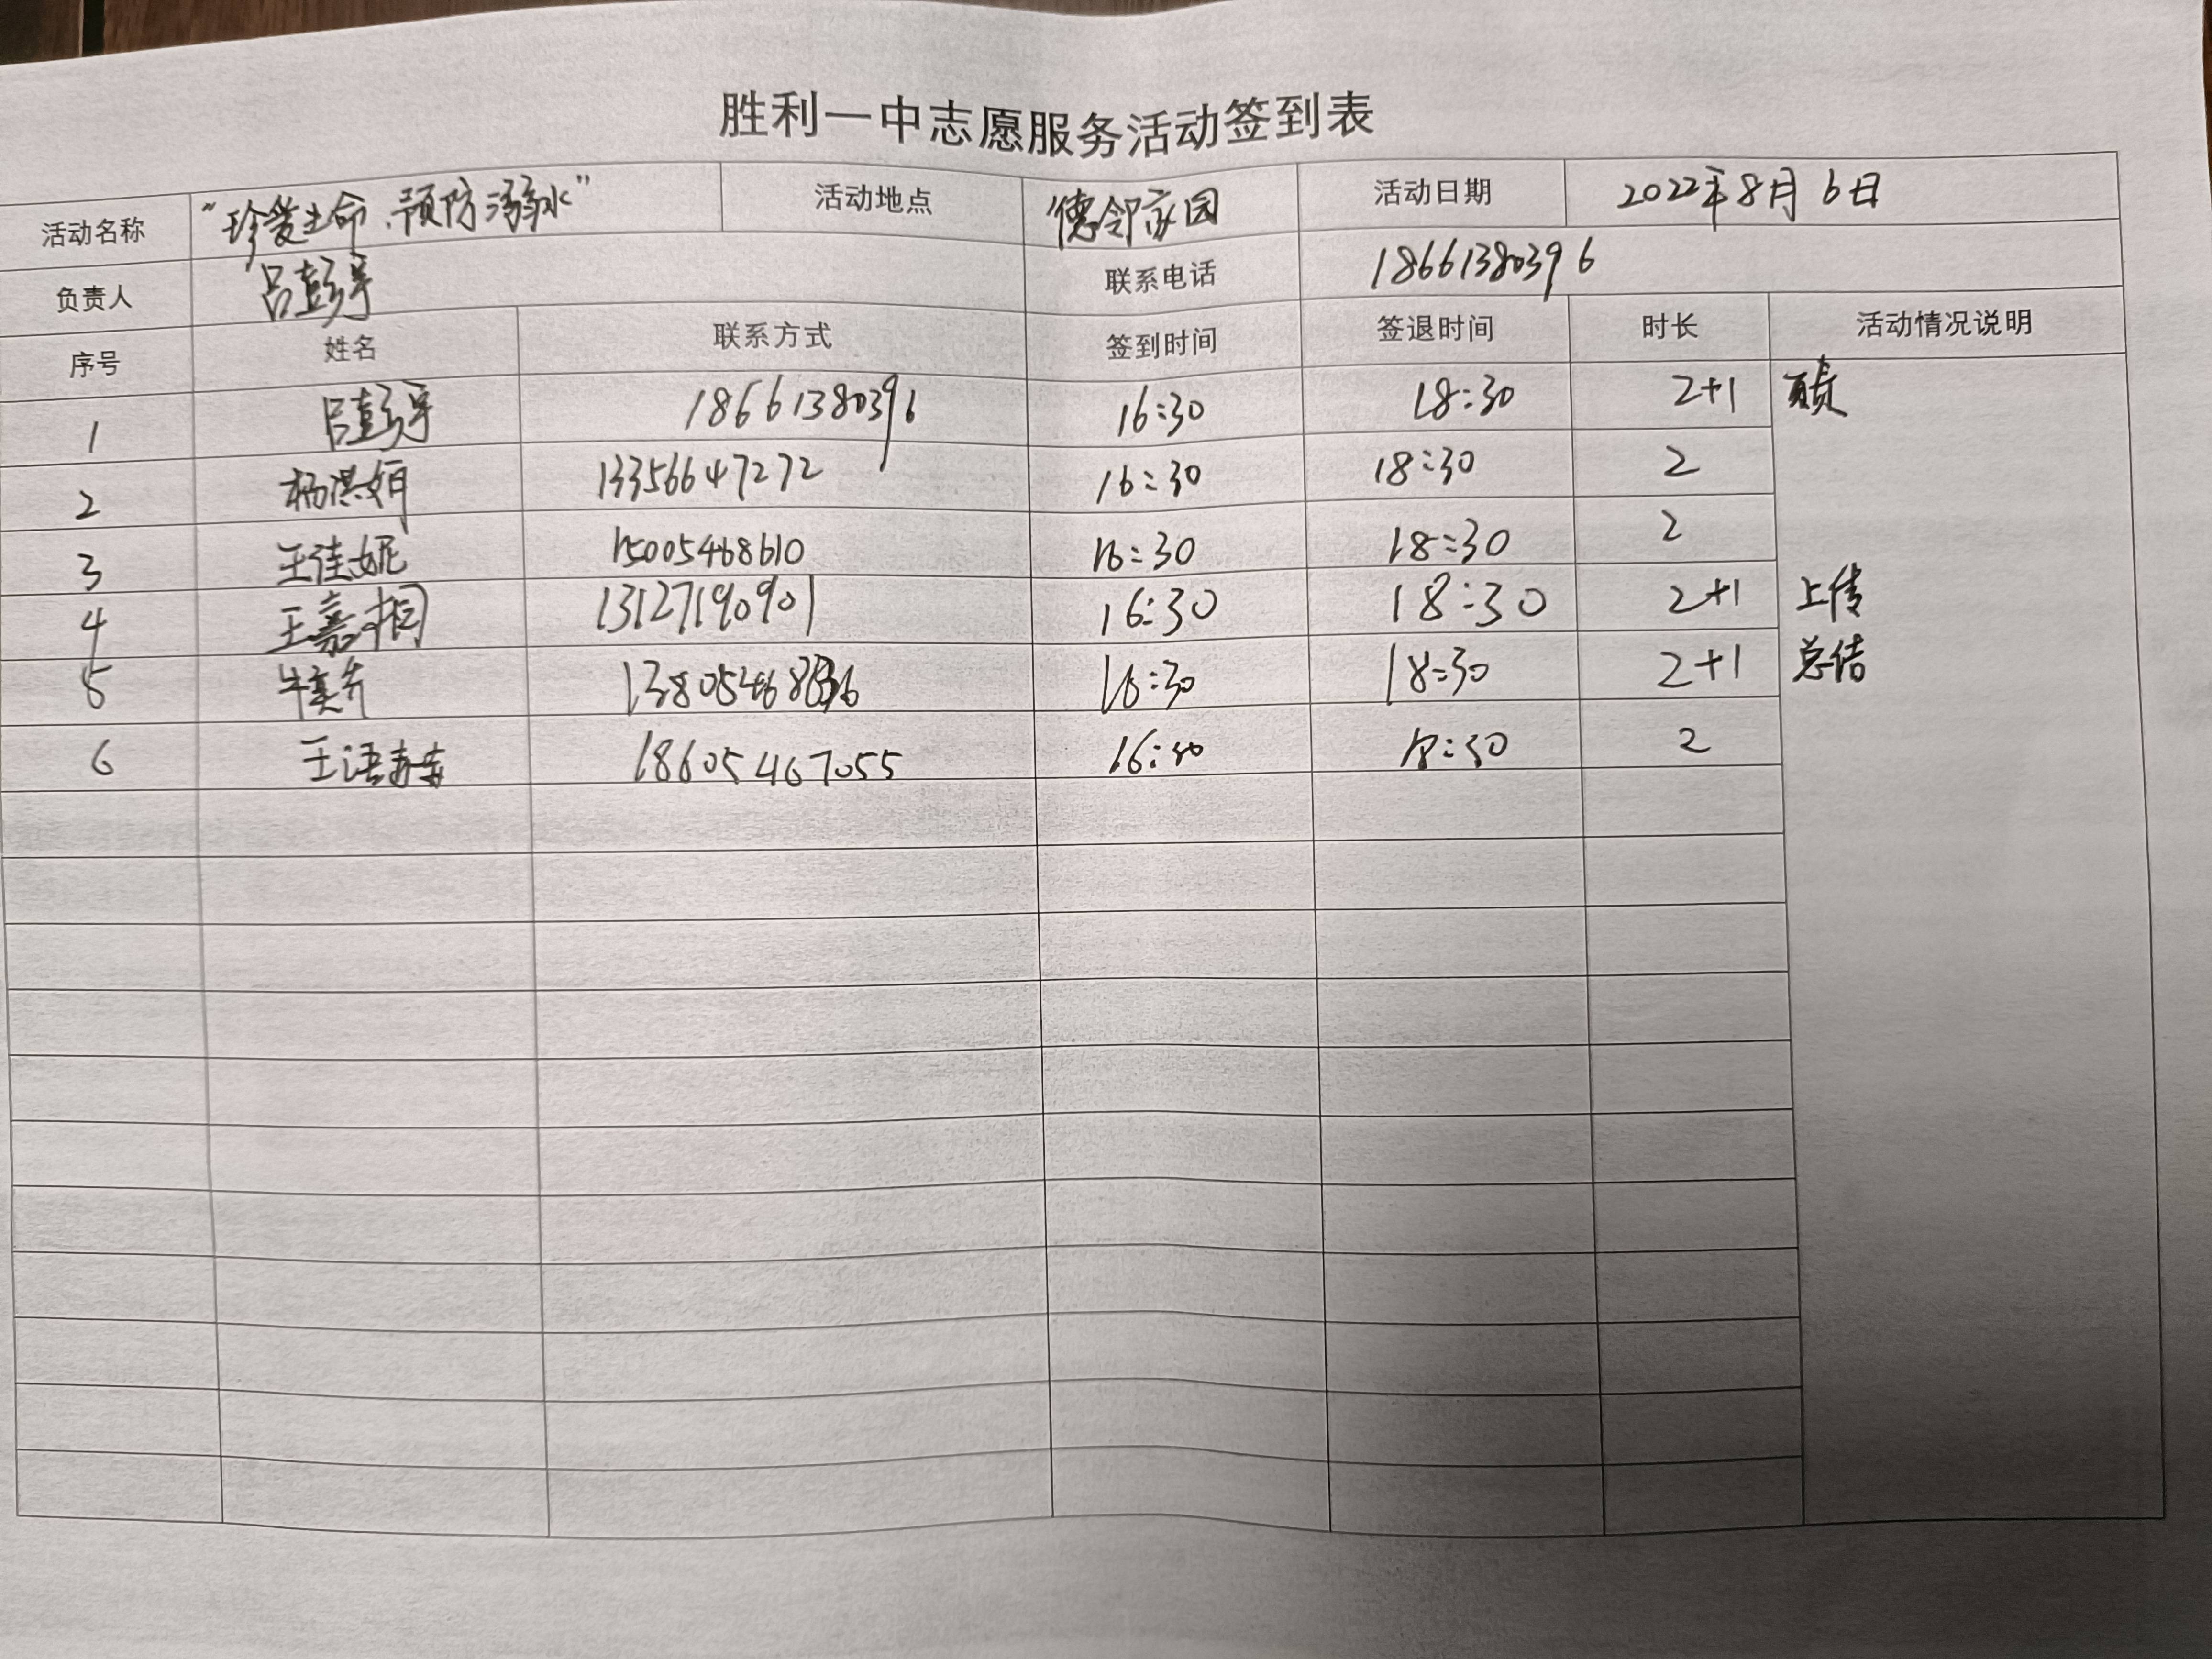 胜利一中志愿服务活动签到表
活动名称 “珍爱生命、预防溺水” 活动地点 德邻家园 活动日期 2022年8月6日
负责人 吕彭宇 联系电话 18661380396
序号 姓名 联系方式 签到时间 签退时间 时长 活动情况说明
1 吕彭宇 18661380396 16:30 18:30 2+1 负责
2 杨洪娟 13356647272 16:30 18:30 2
3 王佳妮 15005468610 16:30 18:30 2
4 王嘉桐 13127190901 16:30 18:30 2+1 上传
5 16:30 18:30 2+1 总结
6 王语 18605467055 16:30 18:30 2